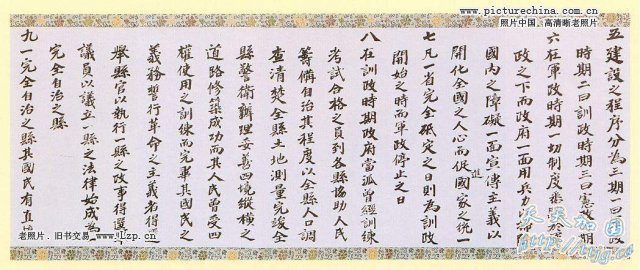 www.picturechina.com.cn
照片中国,高清晰老照片
五 建設之程序分為三期一曰軍政
時期二曰訓政時期三曰憲政時期
六 在軍政時期一切制度悉隸於
政之下而政府一面用兵力
國內之障礙一面宣傳主義以
開化全國之人心而促進國家之統一
七 凡一省完全砥定之日則為訓政
開始之時而軍政停止之日
八 在訓政時期政府當派曾經訓練
考試合格之員到各縣協助人民
籌備自治其程度以全縣人口調
查清楚全縣土地測量完竣全
縣警衛辦理妥善四境縱橫之
道路修築成功而其人民曾受四
權使用之訓練而完畢其國民之
義務誓行革命之主義者得選
舉縣官以執行一縣之政事得選
議員以議立一縣之法律始成為一
完全自治之縣
九 一完全自治之縣其國民有直接
老照片.旧书交易......www.Lzp.cn
天天加图